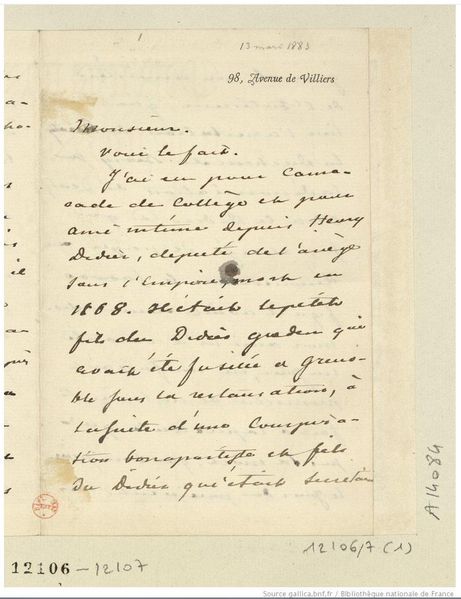 1
13 mars 1883
98, Avenue de Villiers
Monsieur.
Voici le fait.
J'ai eu pour cama-
rade de collège et pour
ami intime depuis Henry
Didier, député de l'ariège
sous l'Empire, mort en
1868. Il était le petit
fils du Didier qui
avait été fusillé à Greno-
ble sous la restauration, à
la suite d'une Conspira-
tion bonapartiste et fils
du Didier qui était Secrétai
A14084
12106/7 (1)
12106-12107
Source gallica.bnf.fr / Bibliothèque nationale de France